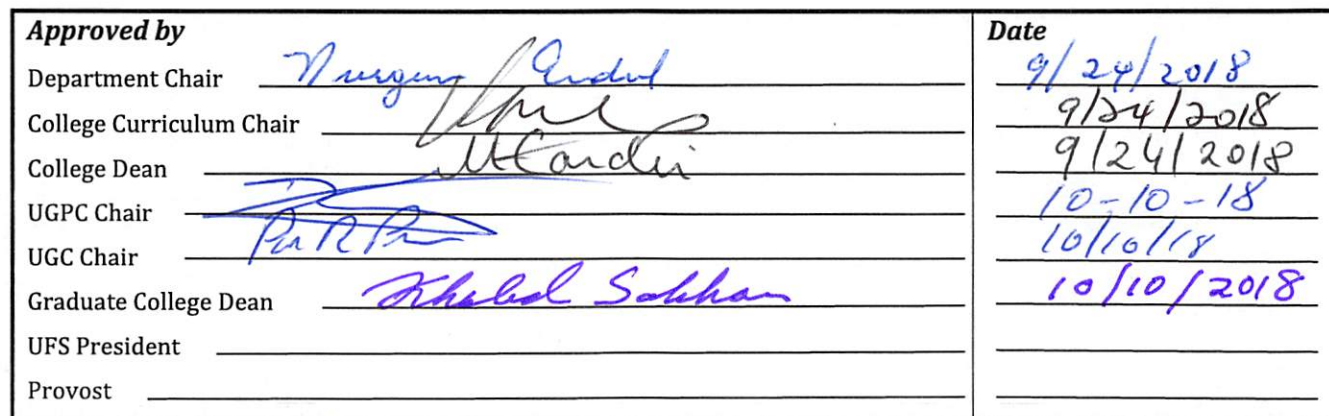 Approved by Date
Department Chair 9/24/2018
College Curriculum Chair 9/24/2018
College Dean 9/24/2018
UGPC Chair 10-10-18
UGC Chair 10/10/18
Graduate College Dean Khaled 10/10/2018
UFS President
Provost